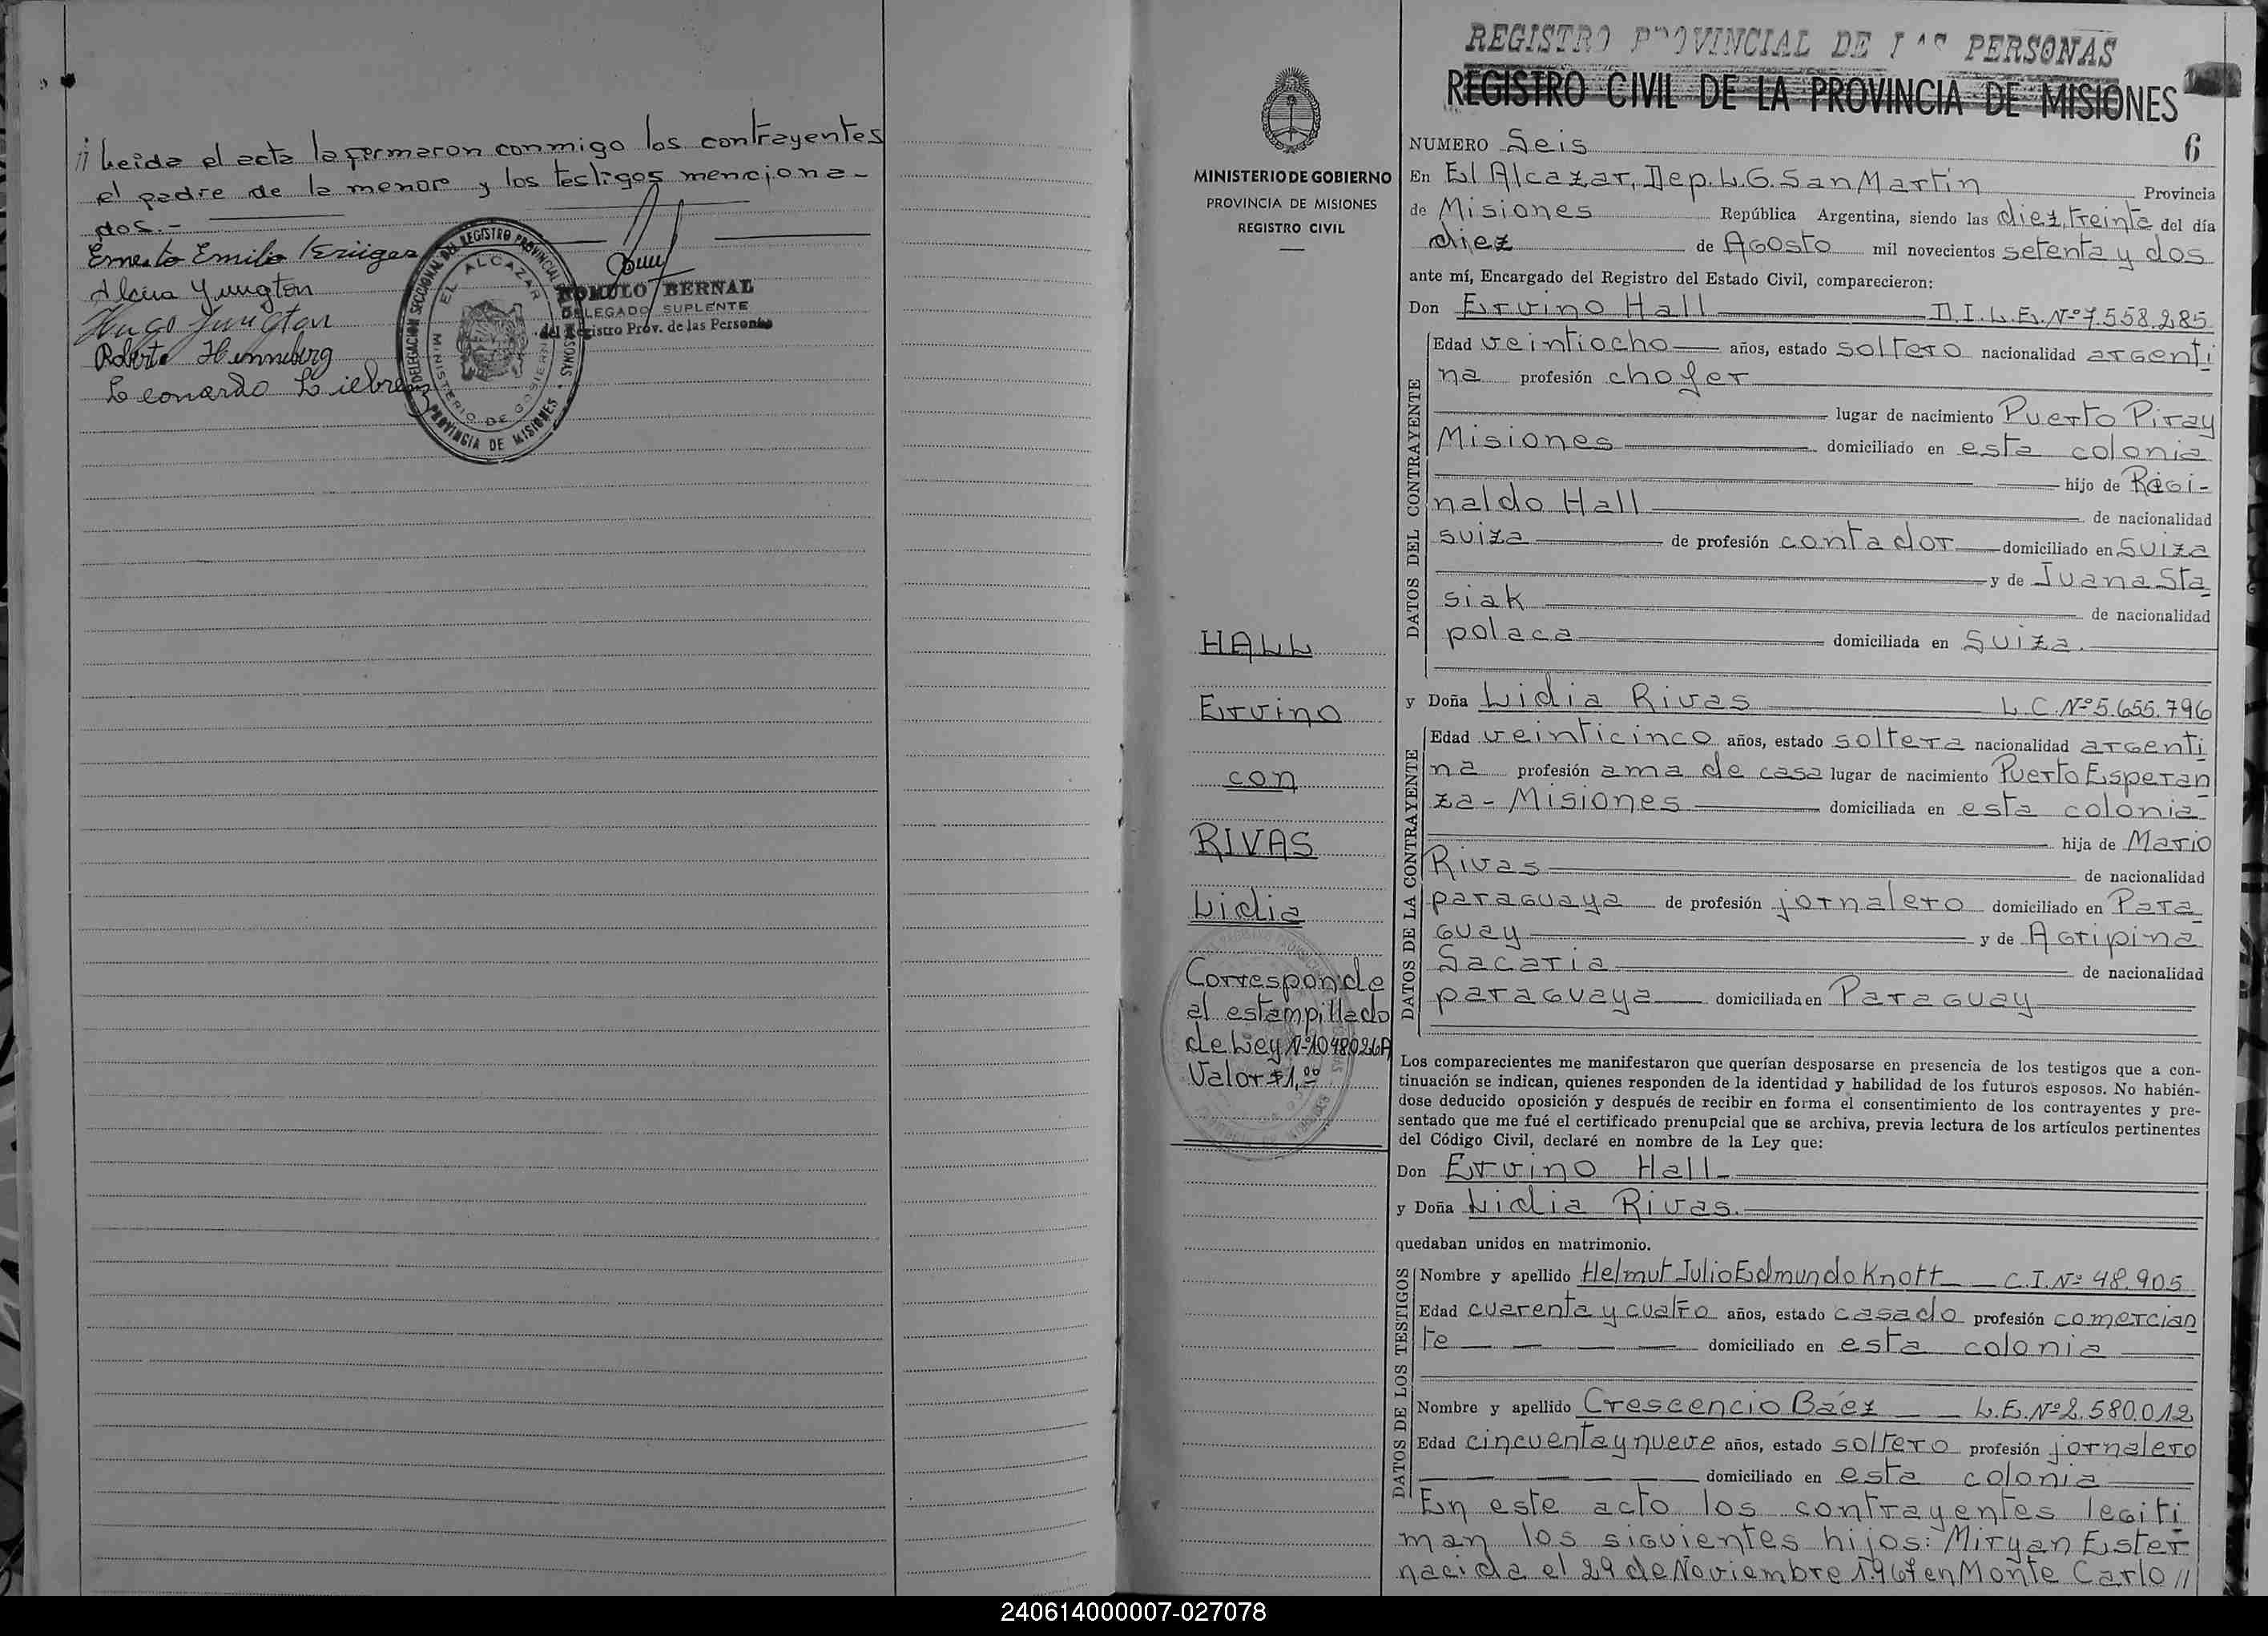 // Leida el acta la firmaron conmigo los contrayentes
el padre de la menor y los testigos menciona-
dos.-
Ernesto Emilio Krüger
Alcira Jungton
Hugo Jungton
Roberto Henneberg
Leonardo Liebrenz
DELEGACION SECCIONAL DEL REGISTRO PROVINCIAL PERSONAS
EL ALCAZAR
MINISTERIO DE GOBIERNO
PROVINCIA DE MISIONES
ROMULO BERNAL
DELEGADO SUPLENTE
del Registro Prov. de las Personas
MINISTERIO DE GOBIERNO
PROVINCIA DE MISIONES
REGISTRO CIVIL
HALL
Ervino
con
RIVAS
Lidia
Corresponde
al estampillado
de Ley Nº 1048026A
Valor $1,00
REGISTRO PROVINCIAL DE LAS PERSONAS
REGISTRO CIVIL DE LA PROVINCIA DE MISIONES
NUMERO Seis 6
En El Alcazar, Dep. L.G. San Martín Provincia
de Misiones República Argentina, siendo las diez, treinta del día
diez de Agosto mil novecientos setenta y dos
ante mí, Encargado del Registro del Estado Civil, comparecieron:
Don Ervino Hall D.I.L.E. Nº 7.558.285
DATOS DEL CONTRAYENTE
Edad veintiocho años, estado soltero nacionalidad argenti
na profesión chofer
lugar de nacimiento Puerto Piray
Misiones domiciliado en esta colonia
hijo de Regi-
naldo Hall de nacionalidad
suiza de profesión contador domiciliado en Suiza
y de Juana Sta
siak de nacionalidad
polaca domiciliada en Suiza.
y Doña Lidia Rivas L.C. Nº 5.655.796
DATOS DE LA CONTRAYENTE
Edad veinticinco años, estado soltera nacionalidad argenti
na profesión ama de casa lugar de nacimiento Puerto Esperan
za - Misiones domiciliada en esta colonia
hija de Mario
Rivas de nacionalidad
paraguaya de profesión jornalero domiciliado en Para
guay y de Agripina
Sacaria de nacionalidad
paraguaya domiciliada en Paraguay
Los comparecientes me manifestaron que querían desposarse en presencia de los testigos que a con-
tinuación se indican, quienes responden de la identidad y habilidad de los futuros esposos. No habién-
dose deducido oposición y después de recibir en forma el consentimiento de los contrayentes y pre-
sentado que me fué el certificado prenupcial que se archiva, previa lectura de los artículos pertinentes
del Código Civil, declaré en nombre de la Ley que:
Don Ervino Hall
y Doña Lidia Rivas.
quedaban unidos en matrimonio.
DATOS DE LOS TESTIGOS
Nombre y apellido Helmut Julio Edmundo Knott C.I. Nº 48.905
Edad cuarenta y cuatro años, estado casado profesión comercian
te domiciliado en esta colonia
Nombre y apellido Crescencio Báez L.E. Nº 2.580.012
Edad cincuenta y nueve años, estado soltero profesión jornalero
domiciliado en esta colonia
En este acto los contrayentes legiti
man los siguientes hijos: Miryan Ester
nacida el 29 de Noviembre 1967 en Monte Carlo //
240614000007-027078